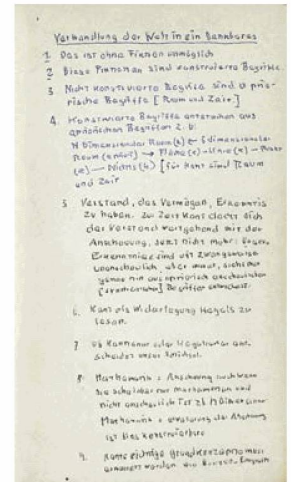 Verwandlung der Welt in ein Denkbares
1. Das ist ohne Fiktionen unmöglich
2 Diese Fiktionen sind konstruierte Begriffe.
3 Nicht konstruierte Begriffe sind a prio-
rische Begriffe [Raum und Zeit]
4. Konstruierte Begriffe entstehen aus
apriorischen Begriffen z.b.
N Dimensionaler Raum (k) ← 3 dimensionaler
Raum (apriori) → Fläche (e) → Linie (e) → Punkt
(e) → Nichts (k) [für Kant sind Raum
und Zeit
5 Verstand, das Vermögen, Erkenntnis
zu haben. Zur Zeit Kants deckt sich
der Verstand weitgehend mit der
Anschauung, jetzt nicht mehr:
Erkenntnisse sind oft zwangsweise
unanschaulich, aber
nur aus apriorisch anschaulichen
Begriffen
6. Kant als Widerlegung Hegels zu
lesen.
7 ob Kantianer oder Hegelianer
scheidet unser Schicksal.
8. Mathematik = Anschauung auch wenn
sie scheinbar nur mathematisch und
nicht anschaulich ist z b N Dimensionen
Mathematik = Erweiterung der Anschauung
ist das konstruierbare
9. Kants richtige
erneuert werden von